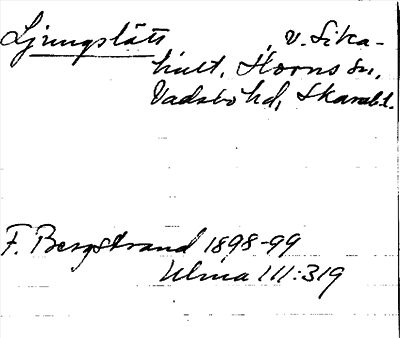 Ljungslätt v. Sika-
hult, Horns sn,
Vadsbo hd, Skarab.l.
F. Bergstrand 1898-99
Ulma 111:319